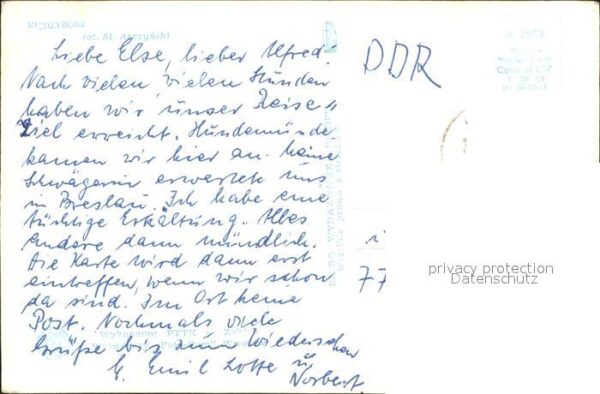 MIĘDZYGÓRZ
fot. St. Arczyński
Liebe Else, lieber Alfred.
Nach vielen, vielen Stunden
haben wir unser Reise"
Ziel erreicht. Hundemünde
kamen wir hier an. Meine
Schwägerin erwartete uns
in Breslau. Ich habe eine
tüchtige Erkältung. Alles
Andere dann mündlich.
Die Karte wird dann erst
eintreffen, wenn wir schon
da sind. Im Ort keine
Post. Nochmals viele
Grüße bis zum Wiedersehen
Emil Lotte u
Norbert
DDR
77
privacy protection
Datenschutz